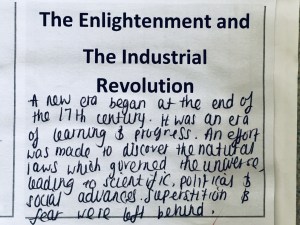 The Enlightenment and
The Industrial
Revolution
A new era began at the end of
the 17th century. It was an era
of learning & progress. An effort
was made to discover the natural
laws which governed the universe,
leading to scientific, political &
social advances. Superstition &
fear were left behind.